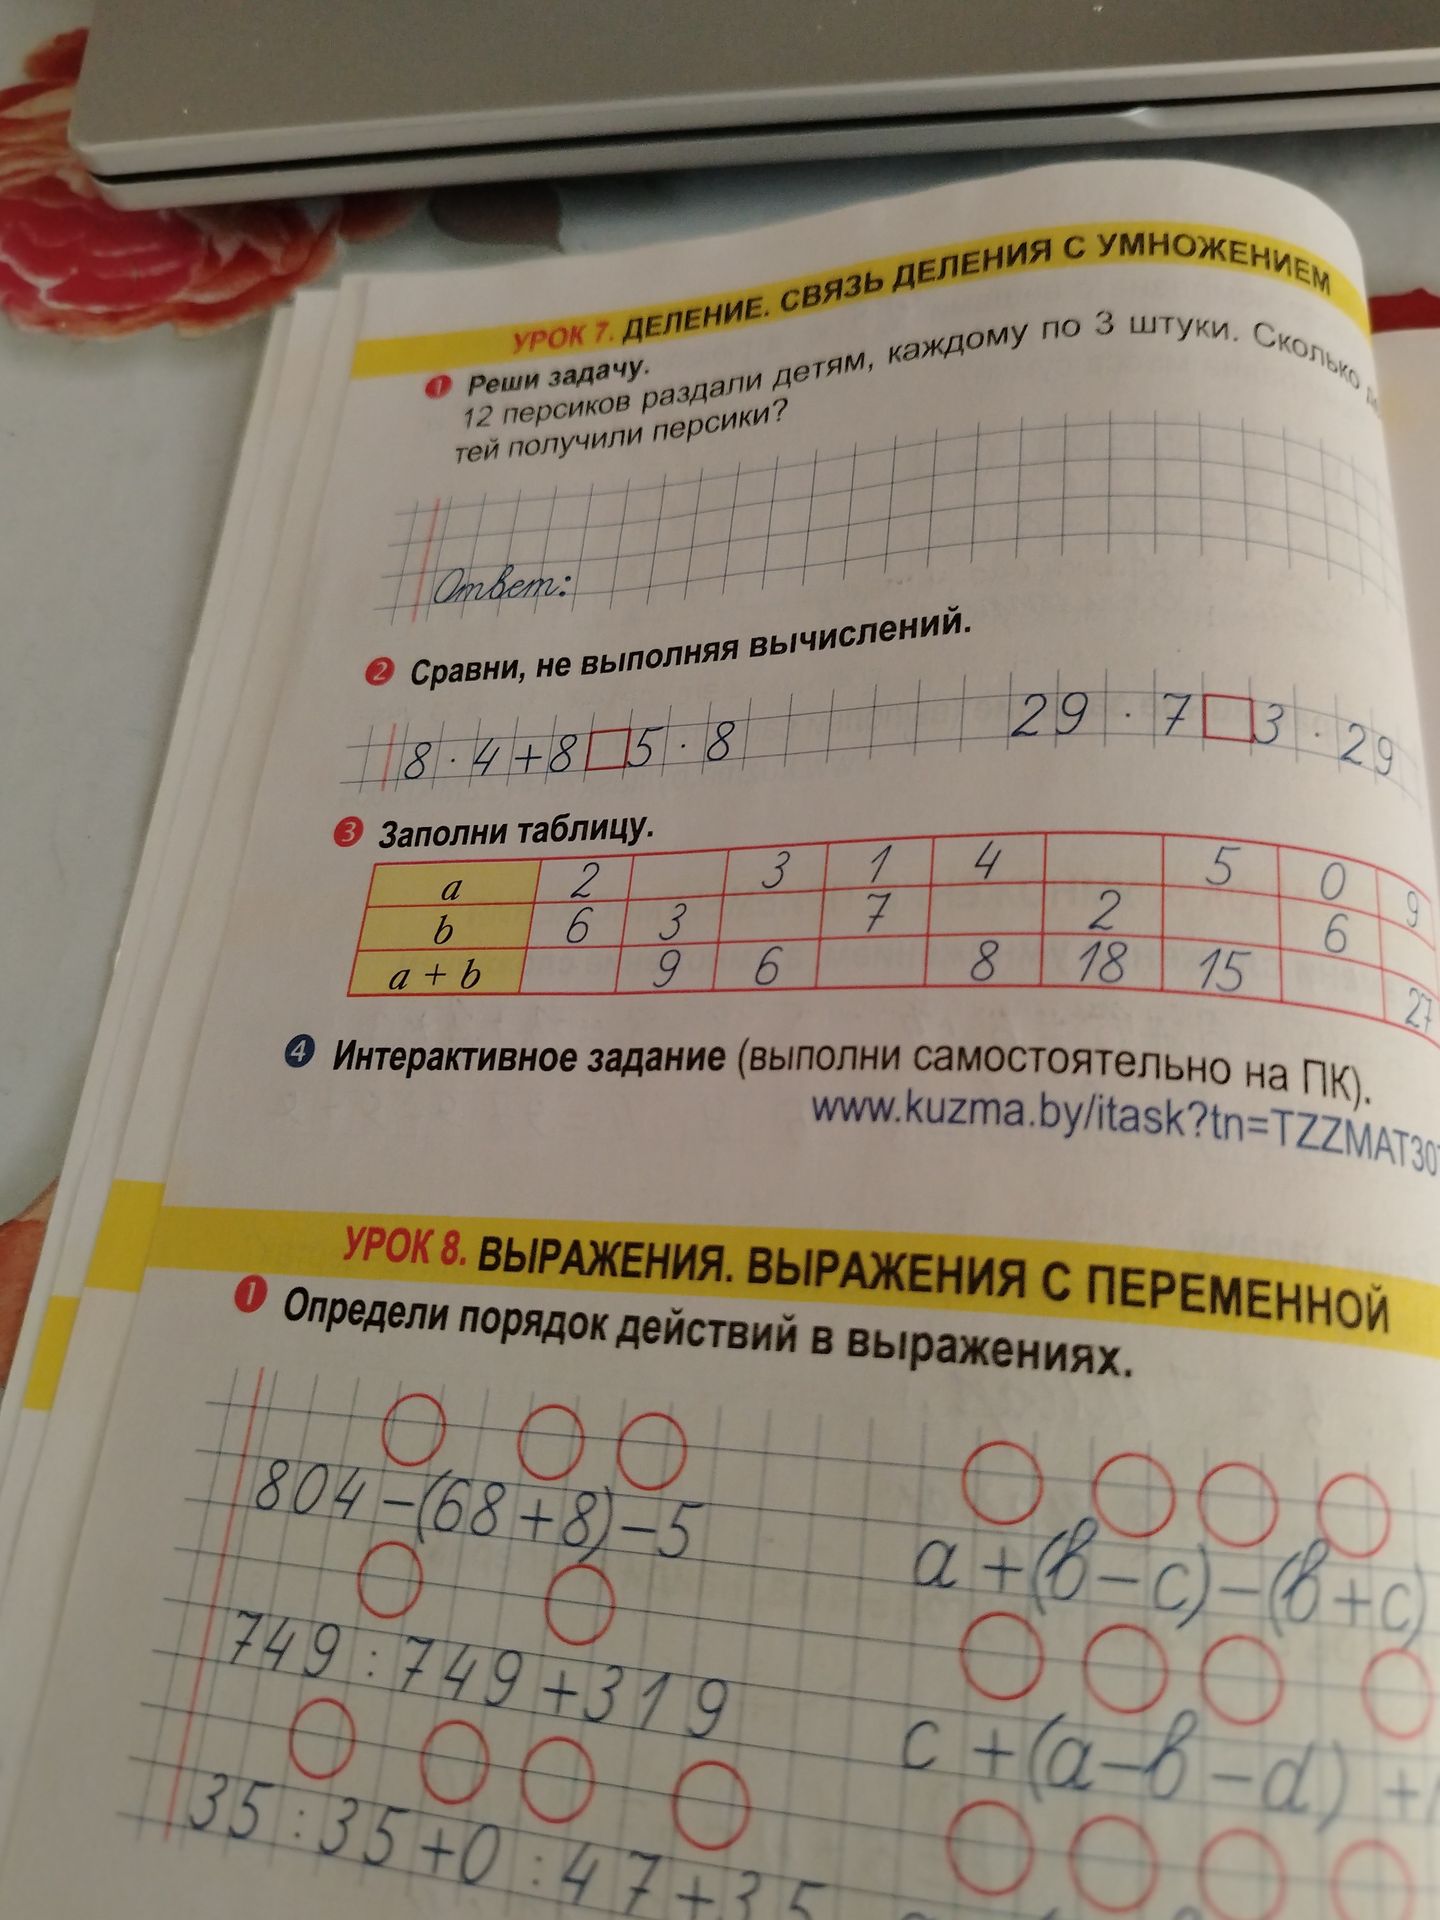 УРОК 7. ДЕЛЕНИЕ. СВЯЗЬ ДЕЛЕНИЯ С УМНОЖЕНИЕМ
1 Реши задачу.
12 персиков раздали детям, каждому по 3 штуки. Сколько де
тей получили персики?
Ответ:
2 Сравни, не выполняя вычислений.
8 · 4 + 8 □ 5 · 8 29 · 7 □ 3 · 29
3 Заполни таблицу.
a 2 3 1 4 5 0 9
b 6 3 7 2 6
a + b 9 6 8 18 15 27
4 Интерактивное задание (выполни самостоятельно на ПК).
www.kuzma.by/itask?tn=TZZMAT30
УРОК 8. ВЫРАЖЕНИЯ. ВЫРАЖЕНИЯ С ПЕРЕМЕННОЙ
1 Определи порядок действий в выражениях.
804 – (68 + 8) – 5 a + (b – c) – (b + c)
749 : 749 + 319 c + (a – b – d) +
35 : 35 + 0 : 47 + 35